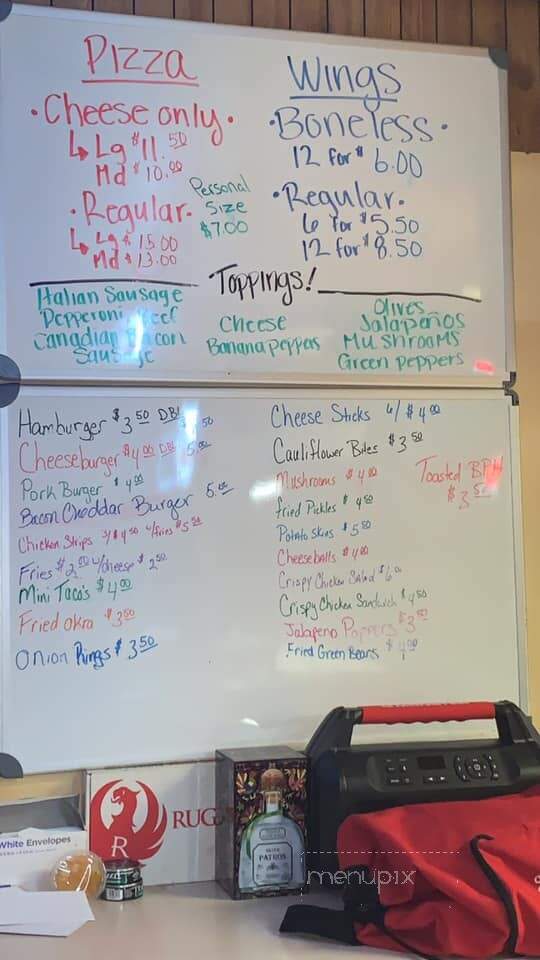 Pizza
• Cheese only •
↳ Lg $11.50
Md $10.00
• Regular •
↳ Lg $15.00
Md $13.00
Personal
Size
$7.00
Wings
• Boneless •
12 for $6.00
• Regular •
6 for $5.50
12 for $8.50
Toppings!
Italian Sausage
Pepperoni Beef
Canadian Bacon
Sausage
Cheese
Banana peppers
Olives
Jalapeños
Mushrooms
Green peppers
Hamburger $3.50 DBL
Cheeseburger $4.00 DBL 5.00
Pork Burger $4.00
Bacon Cheddar Burger 5.00
Chicken Strips 3/$4.50 w/fries $5.50
Fries $2.00 w/cheese $2.50
Mini Taco's $4.00
Fried okra $3.50
Onion Rings $3.50
Cheese Sticks 6/$4.00
Cauliflower Bites $3.50
Mushrooms $4.00
fried Pickles $4.00
Potato skins $5.50
Cheeseballs $4.00
Crispy Chicken Salad $6.00
Crispy Chicken Sandwich $4.50
Jalapeno Poppers $3.50
Fried Green Beans $4.00
Toasted BPM
$3.50
White Envelopes
R
RUG
SILVER
PATRÓN
menupix